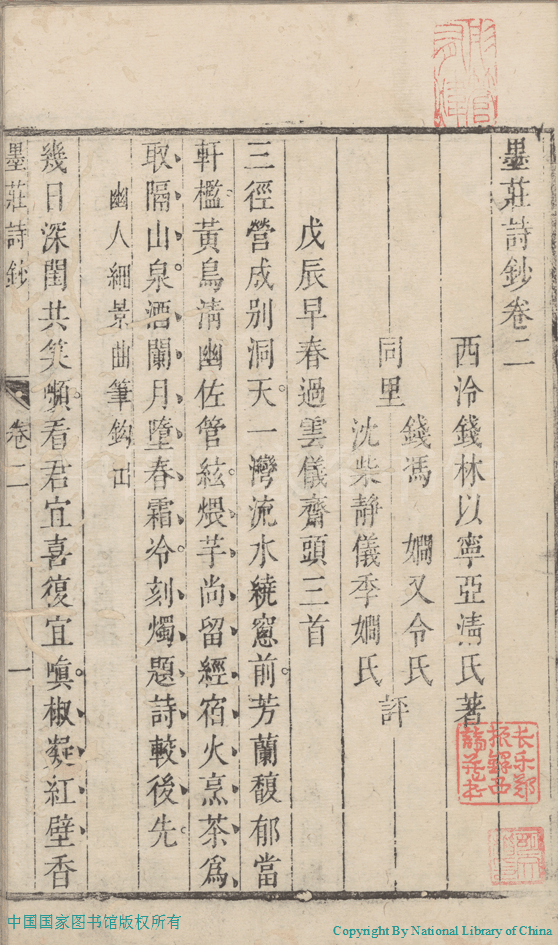 墨莊詩鈔卷二
西泠錢林以寧亞清氏著
同里
錢馮　嫻又令氏
沈柴靜儀季嫻氏
評
戊辰早春過雲儀齋頭三首
三徑營成別洞天。一灣流水繞窻前。芳蘭馥郁當
軒檻。黃鳥清幽佐管絃。煨芋尚留經宿火。烹茶爲
取隔山泉。酒闌月墮春霜冷。刻燭題詩較後先。
幽人細景曲筆鈎出
幾日深閨共笑嚬。看君宜喜復宜嗔。椒凝紅壁香
墨莊詩鈔　卷二　一
长乐郑振铎西谛藏书
中国国家图书馆版权所有
Copyright By National Library of China